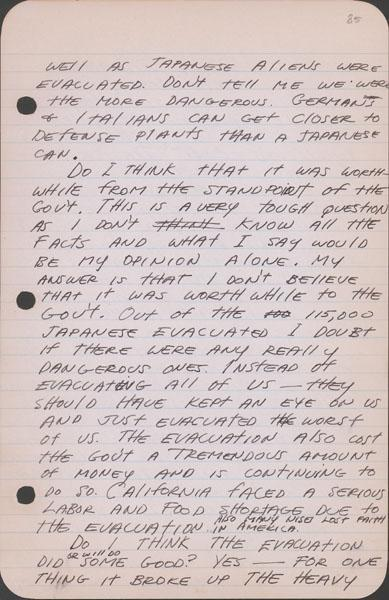 85
WELL AS JAPANESE ALIENS WERE
EVACUATED. DON'T TELL ME WE WERE
THE MORE DANGEROUS. GERMANS
& ITALIANS CAN GET CLOSER TO
DEFENSE PLANTS THAN A JAPANESE
CAN.
DO I THINK THAT IT WAS WORTH-
WHILE FROM THE STANDPOINT OF THE
GOV'T. THIS IS A VERY TOUGH QUESTION
AS I DON'T THINK KNOW ALL THE
FACTS AND WHAT I SAY WOULD
BE MY OPINION ALONE. MY
ANSWER IS THAT I DON'T BELIEVE
THAT IT WAS WORTHWHILE TO THE
GOV'T. OUT OF THE 100 115,000
JAPANESE EVACUATED I DOUBT
IF THERE WERE ANY REALLY
DANGEROUS ONES. INSTEAD OF
EVACUATING ALL OF US — THEY
SHOULD HAVE KEPT AN EYE ON US
AND JUST EVACUATED THE WORST
OF US. THE EVACUATION ALSO COST
THE GOV'T A TREMENDOUS AMOUNT
OF MONEY AND IS CONTINUING TO
DO SO. CALIFORNIA FACED A SERIOUS
LABOR AND FOOD SHORTAGE DUE TO
THE EVACUATION. ALSO MANY NISEI LOST FAITH IN AMERICA.
DO I THINK THE EVACUATION
DID OR WILL DO SOME GOOD? YES — FOR ONE
THING IT BROKE UP THE HEAVY